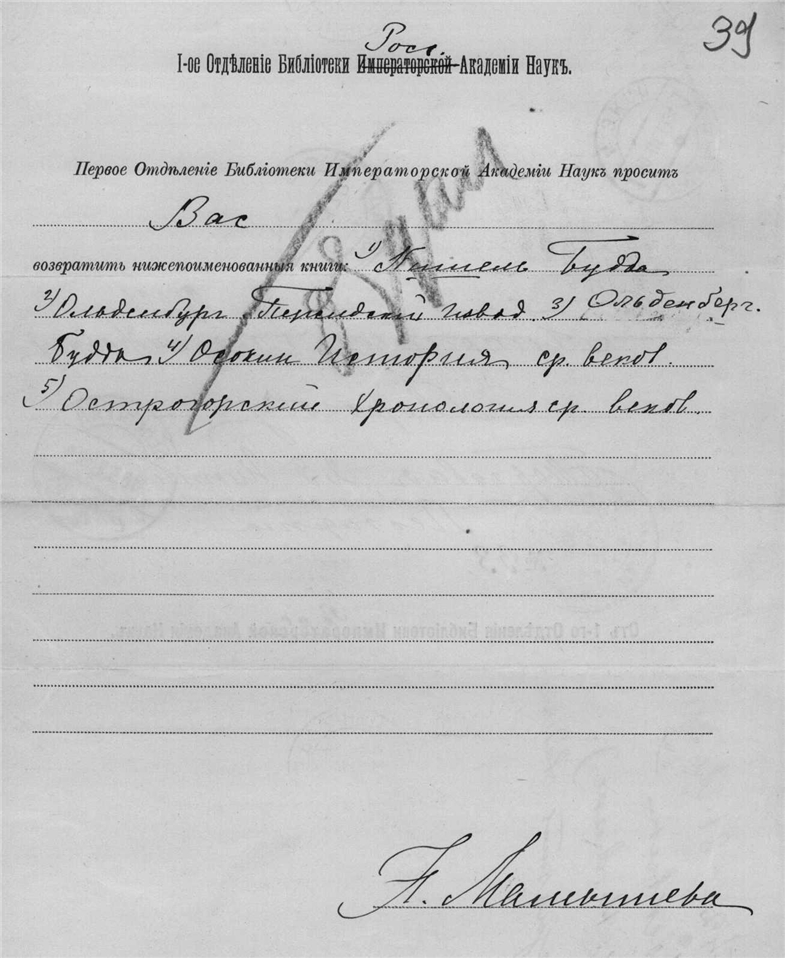 39
Росс.
I-ое Отдѣленіе Библіотеки Императорской Академіи Наукъ.
Первое Отдѣленіе Библіотеки Императорской Академіи Наукъ проситъ
Вас
возвратить нижепоименованныя книги: 1) Пишель Будда
2) Ольденбург Персидский извод 3) Ольденберг.
Будда 4) Осокин История ср. веков.
5) Острогорский Хронология ср. веков.
Н. Малышева